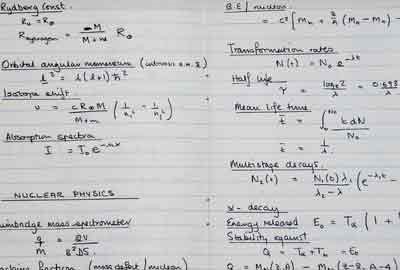 Rydberg Const.
R₀ = R∞
R Hydrogen = M / M+m R∞
Orbital angular momentum
l² = l(l+1)ħ²
Isotope shift.
υ = cR∞M / M+m (1/n₁² - 1/n₂²)
Absorption spectra
I = I₀e
NUCLEAR PHYSICS
Bainbridge mass spectrometer
q/m = 2V / B²DS
fraction (mass defect / nucleon)
B.E / nucleon
= c² [Mₙ + (Mₙ - Mₙ) -
Transformation rates
N(t) = N₀ e^-λt
Half life
τ = logₑ2 / λ = 0.693
Mean life time
t̄ = ∫ t dN / N₀
t̄ = 1/λ
Multistage decays.
N₂(t) = N₁(0) λ₁ / λ₂ - λ₁ (e^-λ₁t -
α - decay
Energy released E₀ = Tα (1 +
Stability against
Q = Tα + = E₀